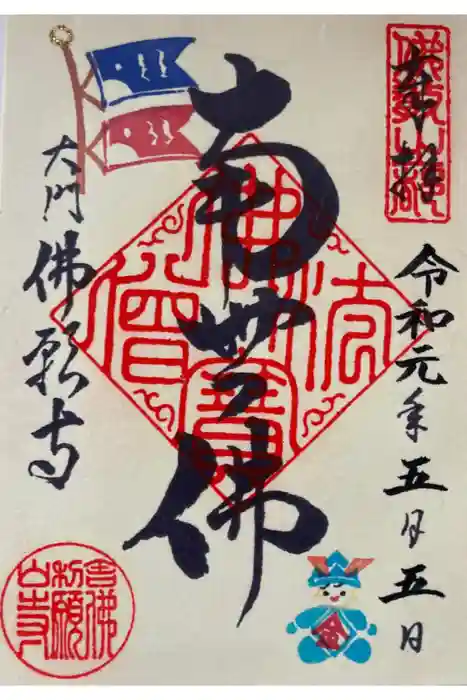 奉拝
令和元年五月五日
南無佛
佛法僧寳
大門
佛願寺